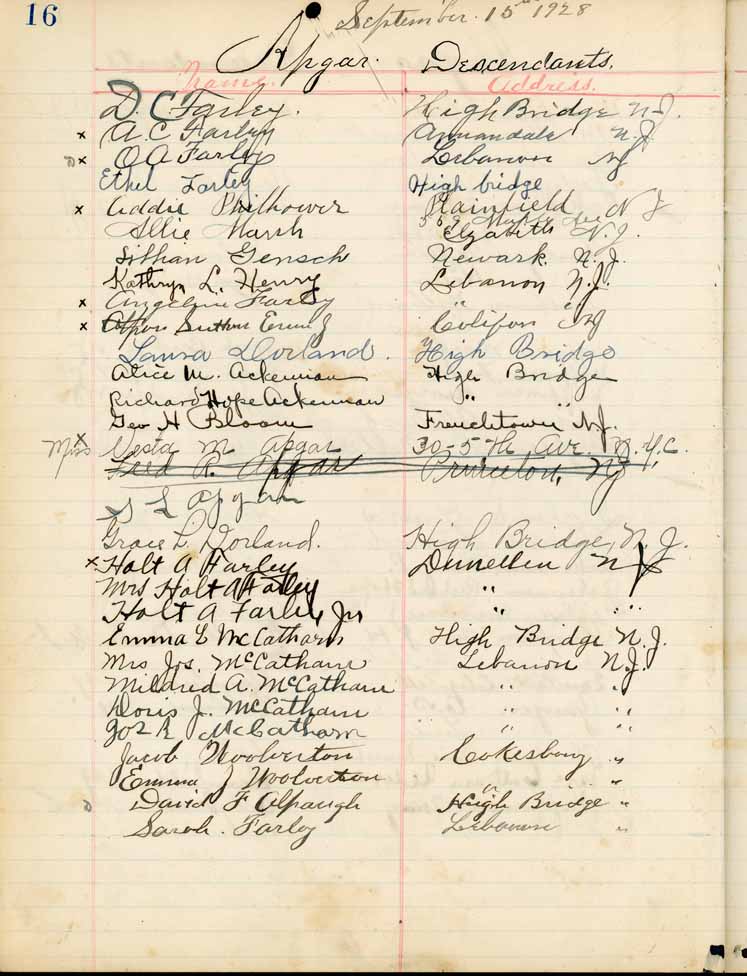 16
September. 15th 1928
Apgar. Descendants.
Name. Address.
D. C Farley. High Bridge N-J.
x A. C Farley Annandale N.J.
x O A Farley Lebanon NJ
Ethel Farley High bridge
x Addie Philhower Plainfield N J
Allie Marsh Elizabeth N.J.
Lillian Gensch Newark N.J.
Kathryn L. Henry Lebanon N.J.
x Angeline Farley " "
x Califon NJ
Laura Dorland. High Bridge
Alice M. Ackerman High Bridge
Richard Hope Ackerman " "
Geo H Bloom Frenchtown N.J.
Miss x Vesta M Apgar 30-5th Ave. N.Y.C.
Fred R. Apgar Princeton, NJ
S L Apgar
Grace L. Dorland. High Bridge, N. J.
x Holt A Farley Dunellen NJ
Mrs Holt A Farley "
Holt A Farley Jr " "
Emma E McCatharn High Bridge N.J.
Mrs Jos. McCatharn Lebanon N.J.
Mildred A. McCatharn " "
Doris J. McCatharn " "
Jos R McCatharn " "
Jacob Woolverton Cokesbury "
Emma J Woolverton " "
David F Alpaugh High Bridge "
Sarah. Farley Lebanon "